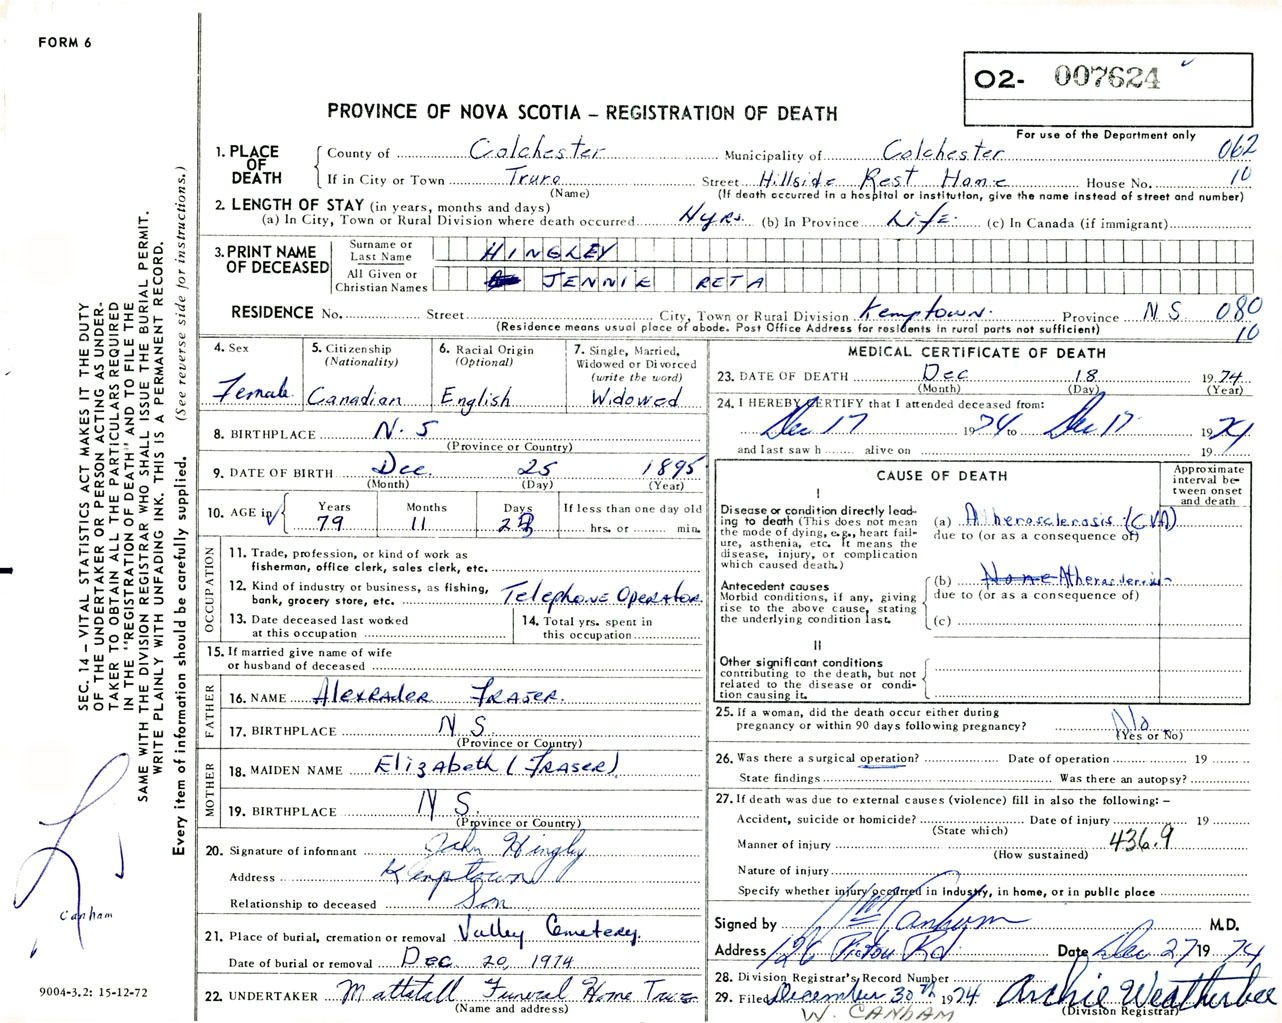 FORM 6
02- 007624
PROVINCE OF NOVA SCOTIA – REGISTRATION OF DEATH
For use of the Department only
1. PLACE OF DEATH
County of Colchester Municipality of Colchester 062
If in City or Town Truro Street Hillside Rest Home House No. 10
(Name) (If death occurred in a hospital or institution, give the name instead of street and number)
2. LENGTH OF STAY (in years, months and days)
(a) In City, Town or Rural Division where death occurred 4 yrs. (b) In Province Life. (c) In Canada (if immigrant)
3. PRINT NAME OF DECEASED
Surname or Last Name HINGLEY
All Given or Christian Names JENNIE RETA
RESIDENCE No. Street City, Town or Rural Division Kemptown. Province N.S. 080
(Residence means usual place of abode. Post Office Address for residents in rural parts not sufficient) 10
4. Sex Female
5. Citizenship (Nationality) Canadian
6. Racial Origin (Optional) English
7. Single, Married, Widowed or Divorced (write the word) Widowed
8. BIRTHPLACE N.S
(Province or Country)
9. DATE OF BIRTH Dec. 25 1895
(Month) (Day) (Year)
10. AGE in Years Months Days If less than one day old
79 11 hrs. or min.
OCCUPATION
11. Trade, profession, or kind of work as fisherman, office clerk, sales clerk, etc.
12. Kind of industry or business, as fishing, bank, grocery store, etc. Telephone Operator
13. Date deceased last worked at this occupation
14. Total yrs. spent in this occupation
15. If married give name of wife or husband of deceased
FATHER
16. NAME Alexrader Fraser.
17. BIRTHPLACE N S.
(Province or Country)
MOTHER
18. MAIDEN NAME Elizabeth (Fraser)
19. BIRTHPLACE N S.
(Province or Country)
20. Signature of informant John Hingley
Address Kemptown
Relationship to deceased Son
21. Place of burial, cremation or removal Valley Cemetery.
Date of burial or removal Dec 20, 1974
22. UNDERTAKER Mattatall Funeral Home Truro
(Name and address)
MEDICAL CERTIFICATE OF DEATH
23. DATE OF DEATH Dec 18 1974
(Month) (Day) (Year)
24. I HEREBY CERTIFY that I attended deceased from:
Dec 17 1974 to Dec 17 1974
and last saw h alive on 19
CAUSE OF DEATH
Approximate interval between onset and death
I
Disease or condition directly leading to death (This does not mean the mode of dying, e.g., heart failure, asthenia, etc. It means the disease, injury, or complication which caused death.)
(a) Atherosclerosis (CVA)
due to (or as a consequence of)
Antecedent causes
Morbid conditions, if any, giving rise to the above cause, stating the underlying condition last.
(b) None Atherosclerosis
due to (or as a consequence of)
(c)
II
Other significant conditions contributing to the death, but not related to the disease or condition causing it.
25. If a woman, did the death occur either during pregnancy or within 90 days following pregnancy? No
(Yes or No)
26. Was there a surgical operation? Date of operation 19
State findings Was there an autopsy?
27. If death was due to external causes (violence) fill in also the following: –
Accident, suicide or homicide? Date of injury 19
(State which)
Manner of injury 436.9
(How sustained)
Nature of injury
Specify whether injury occurred in industry, in home, or in public place
Signed by W Canham M.D.
Address 126 Pictou Rd Date Dec 27 1974
28. Division Registrar's Record Number
29. Filed December 30th 1974 Archie Weatherbee
(Division Registrar)
W. CANHAM
SEC. 14 – VITAL STATISTICS ACT MAKES IT THE DUTY
OF THE UNDERTAKER OR PERSON ACTING AS UNDER-
TAKER TO OBTAIN ALL THE PARTICULARS REQUIRED
IN THE "REGISTRATION OF DEATH" AND TO FILE THE
SAME WITH THE DIVISION REGISTRAR WHO SHALL ISSUE THE BURIAL PERMIT.
WRITE PLAINLY WITH UNFADING INK. THIS IS A PERMANENT RECORD.
Every item of information should be carefully supplied. (See reverse side for instructions.)
Canham
9004-3.2: 15-12-72